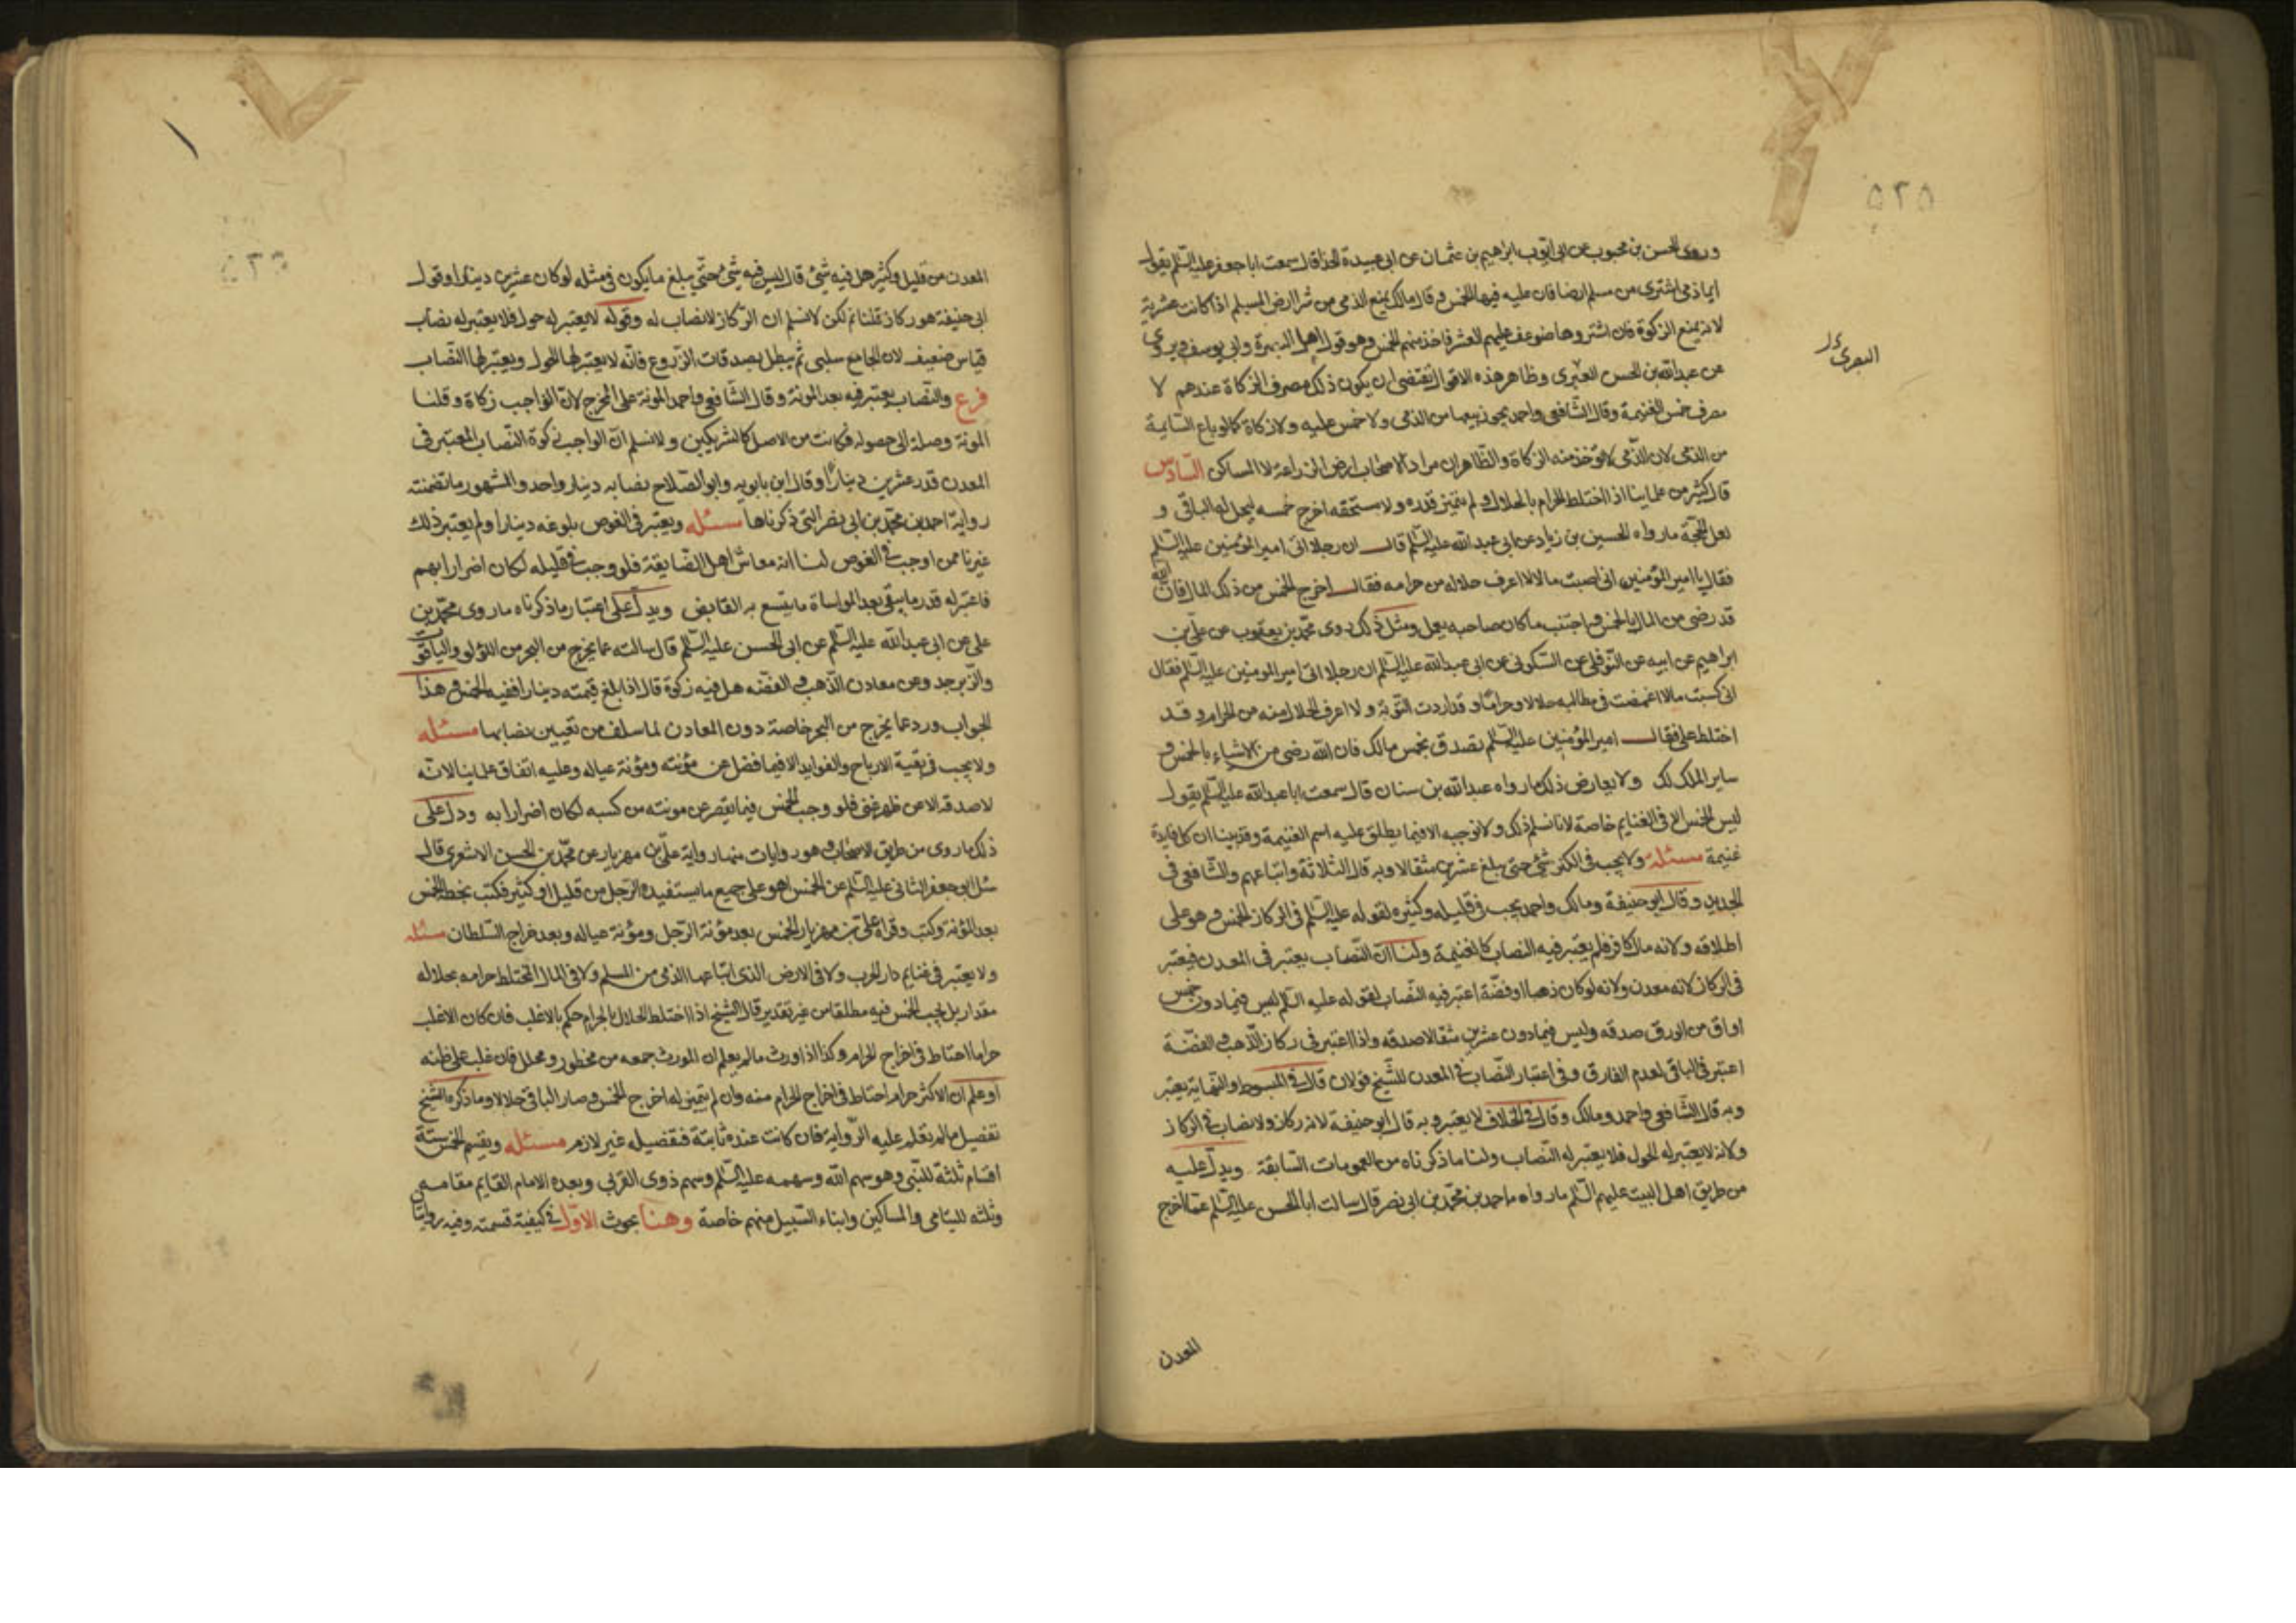 ٥٢٥
وروى الحسن بن محبوب عن ابى ايوب ابراهيم بن عثمان عن ابى عبيدة الحذا قال سمعت ابا جعفر عليه السلم يقول
ايما ذمى اشترى من مسلم ارضا فان عليه فيها الخمس وقال مالك يمنع الذمى من شرا ارض المسلم اذا كانت عشرية
لانه يمنع الزكوة فان اشتروها ضوعف عليهم العشر فاخذ منهم الخمس وهو قول اهل البصرة وابى يوسف ويروى
عن عبد الله بن الحسن العنبرى وظاهر هذه الاقوال تقتضى ان يكون ذلك مصرف الزكاة عندهم لا
مصرف خمس الغنيمة وقال الشافعى واحمد يجوز بيعها من الذمى ولا خمس عليه ولا زكاة كما لو باع السايمة
من الذمى لان الذمى لا تؤخذ منه الزكاة والظاهر ان مراد الاصحاب ارض الزراعة لا المساكن السادس
قال كثير من علماينا اذا اختلط الحرام بالحلال ولم يتميز قدره ولا مستحقه اخرج خمسه ليحل له الباقى و
لعل الحجة ما رواه الحسين بن زياد عن ابى عبد الله عليه السلم قال ان رجلا اتى امير المؤمنين عليه السلم
فقال يا امير المؤمنين انى اصبت مالا لا اعرف حلاله من حرامه فقال اخرج الخمس من ذلك المال فان الله
قد رضى من المال بالخمس واجتنب ما كان صاحبه يعمل ومثل ذلك روى محمد بن يعقوب عن على بن
ابراهيم عن ابيه عن النوفلى عن السكونى عن ابى عبد الله عليه السلم ان رجلا اتى امير المومنين عليه السلم فقال
انى كسبت مالا اغمضت فى مطالبه حلالا وحراما وقد اردت التوبة ولا اعرف الحلال منه من الحرام وقد
اختلط على فقال امير المؤمنين عليه السلم تصدق بخمس مالك فان الله رضى من الاشياء بالخمس و
ساير الملك لك ولا يعارض ذلك ما رواه عبد الله بن سنان قال سمعت ابا عبد الله عليه السلم يقول
ليس الخمس الا فى الغنايم خاصة لانا نسلم ذلك ولا نوجبه الا فيما يطلق عليه اسم الغنيمة وقد بينا ان كل فايدة
غنيمة مسئلة ولا يجب فى الكنز شئ حتى يبلغ عشرين مثقالا وبه قال الثلاثة واتباعهم والشافعى فى
الجديد وقال ابو حنيفة ومالك واحمد يجب فى قليله وكثيره لقوله عليه السلم فى الركاز الخمس وهو على
اطلاقه ولانه مال كافر فلم يعتبر فيه النصاب كالغنيمة ولنا ان النصاب يعتبر فى المعدن فيعتبر
فى الركاز لانه معدن ولانه لو كان ذهبا او فضة اعتبر فيه النصاب لقوله عليه السلم ليس فيما دون خمس
اواق من الورق صدقه وليس فيما دون عشرين مثقالا صدقه واذا اعتبر فى ركاز الذهب والفضة
اعتبر فى الباقى لعدم الفارق وفى اعتبار النصاب فى المعدن للشيخ قولان قال فى المبسوط والنهاية يعتبر
وبه قال الشافعى واحمد ومالك وقال فى الخلاف لا يعتبر وبه قال ابو حنيفة لانه ركاز ولا نصاب فى الركاز
ولانه لا يعتبر له الحول فلا يعتبر له النصاب ولنا ما ذكرناه من العمومات السابقة ويدل عليه
من طريق اهل البيت عليهم السلم ما رواه احمد بن محمد بن ابى نصر قال سالت ابا الحسن عليه السلم عما اخرج
المعدن
البصرى
المعدن من قليل وكثير هل فيه شئ قال ليس فيه شئ حتى يبلغ ما يكون فى مثله لو كان عشرين دينارا وقول
ابى حنيفة هو ركاز قلنا نعم لكن لا نسلم ان الركاز لا نصاب له وقوله لا يعتبر له حول فلا يعتبر له نصاب
قياس ضعيف لان الجامع سلبى ثم يبطل بصدقات الزروع فانه لا يعتبر لها الحول ويعتبر لها النصاب
فرع والنصاب يعتبر فيه بعد المونة وقال الشافعى واحمد المونة على المخرج لان الواجب زكاة وقلنا
المونة وصلة الى حصوله فكانت من الاصل كالشريكين ولا نسلم ان الواجب زكوة النصاب المعتبر فى
المعدن قدر عشرين دينارا وقال ابن بابويه وابو الصلاح نصابه دينار واحد والمشهور ما تضمنته
رواية احمد بن محمد بن ابى نصر التى ذكرناها مسئله ويعتبر فى الغوص بلوغه دينارا ولم يعتبر ذلك
غيرنا ممن اوجب فى الغوص لنا انه معاش اهل الضايقة فلو وجب فى قليله لكان اضرارا بهم
فاعتبر له قدر ما يبقى بعد المواساة ما يتسع به القابض ويدل على اعتبار ما ذكرناه ما روى محمد بن
على عن ابى عبد الله عليه السلم عن ابى الحسن عليه السلم قال سالته عما يخرج من البحر من اللؤلو والياقوت
والزبرجد وعن معادن الذهب والفضه هل فيه زكوة قال اذا بلغ قيمته دينارا ففيه الخمس وهذا
الجواب ورد عما يخرج من البحر خاصة دون المعادن لما سلف من تعيين نصابها مسئله
ولا يجب فى بقية الارباح والفوايد الا فيما فضل عن مؤنته ومؤنة عياله وعليه اتفاق علماينا لانه
لا صدقه الا عن ظهر غنى فلو وجب الخمس فيما يقصر عن مونته من كسبه لكان اضرارا به ودل على
ذلك ما روى من طريق الاصحاب وهو روايات منها رواية على بن مهزيار عن محمد بن الحسن الاشعرى قال
سئل ابو جعفر الثانى عليه السلم عن الخمس اهو على جميع ما يستفيده الرجل من قليل او كثير فكتب بخطه الخمس
بعد المؤنة وكتب وقراه على بن مهزيار الخمس بعد مؤنة الرجل ومؤنة عياله وبعد خراج السلطان مسئله
ولا يعتبر فى غنايم دار الحرب ولا فى الارض الذى ابتاعها الذمى من المسلم ولا فى المال المختلط حرامه بحلاله
مقدار بل يجب الخمس فيه مطلقا من غير تقدير قال الشيخ اذا اختلط الحلال بالحرام حكم بالاغلب فان كان الاغلب
حراما احتاط فى اخراج الحرام وكذا اذا ورث مالا يعلم ان المورث جمعه من محظور ومحلل فان غلب على ظنه
او علم ان الاكثر حرام احتاط فى اخراج الحرام منه وان لم يتميز له اخرج الخمس وصار الباقى حلالا وما ذكره الشيخ
تفصيل ما لم نقله عليه الرواية فان كانت عنده ثابتة فتفصيله غير لازم مسئله ويقسم الخمس ستة
اقسام ثلثه للنبى وهو سهم الله وسهمه عليه السلم وسهم ذوى القربى وبعده الامام القايم مقامه و
وثلثه لليتامى والمساكين وابناء السبيل منهم خاصة وهنا بحوث الاول فى كيفية قسمته وفيه روايتان